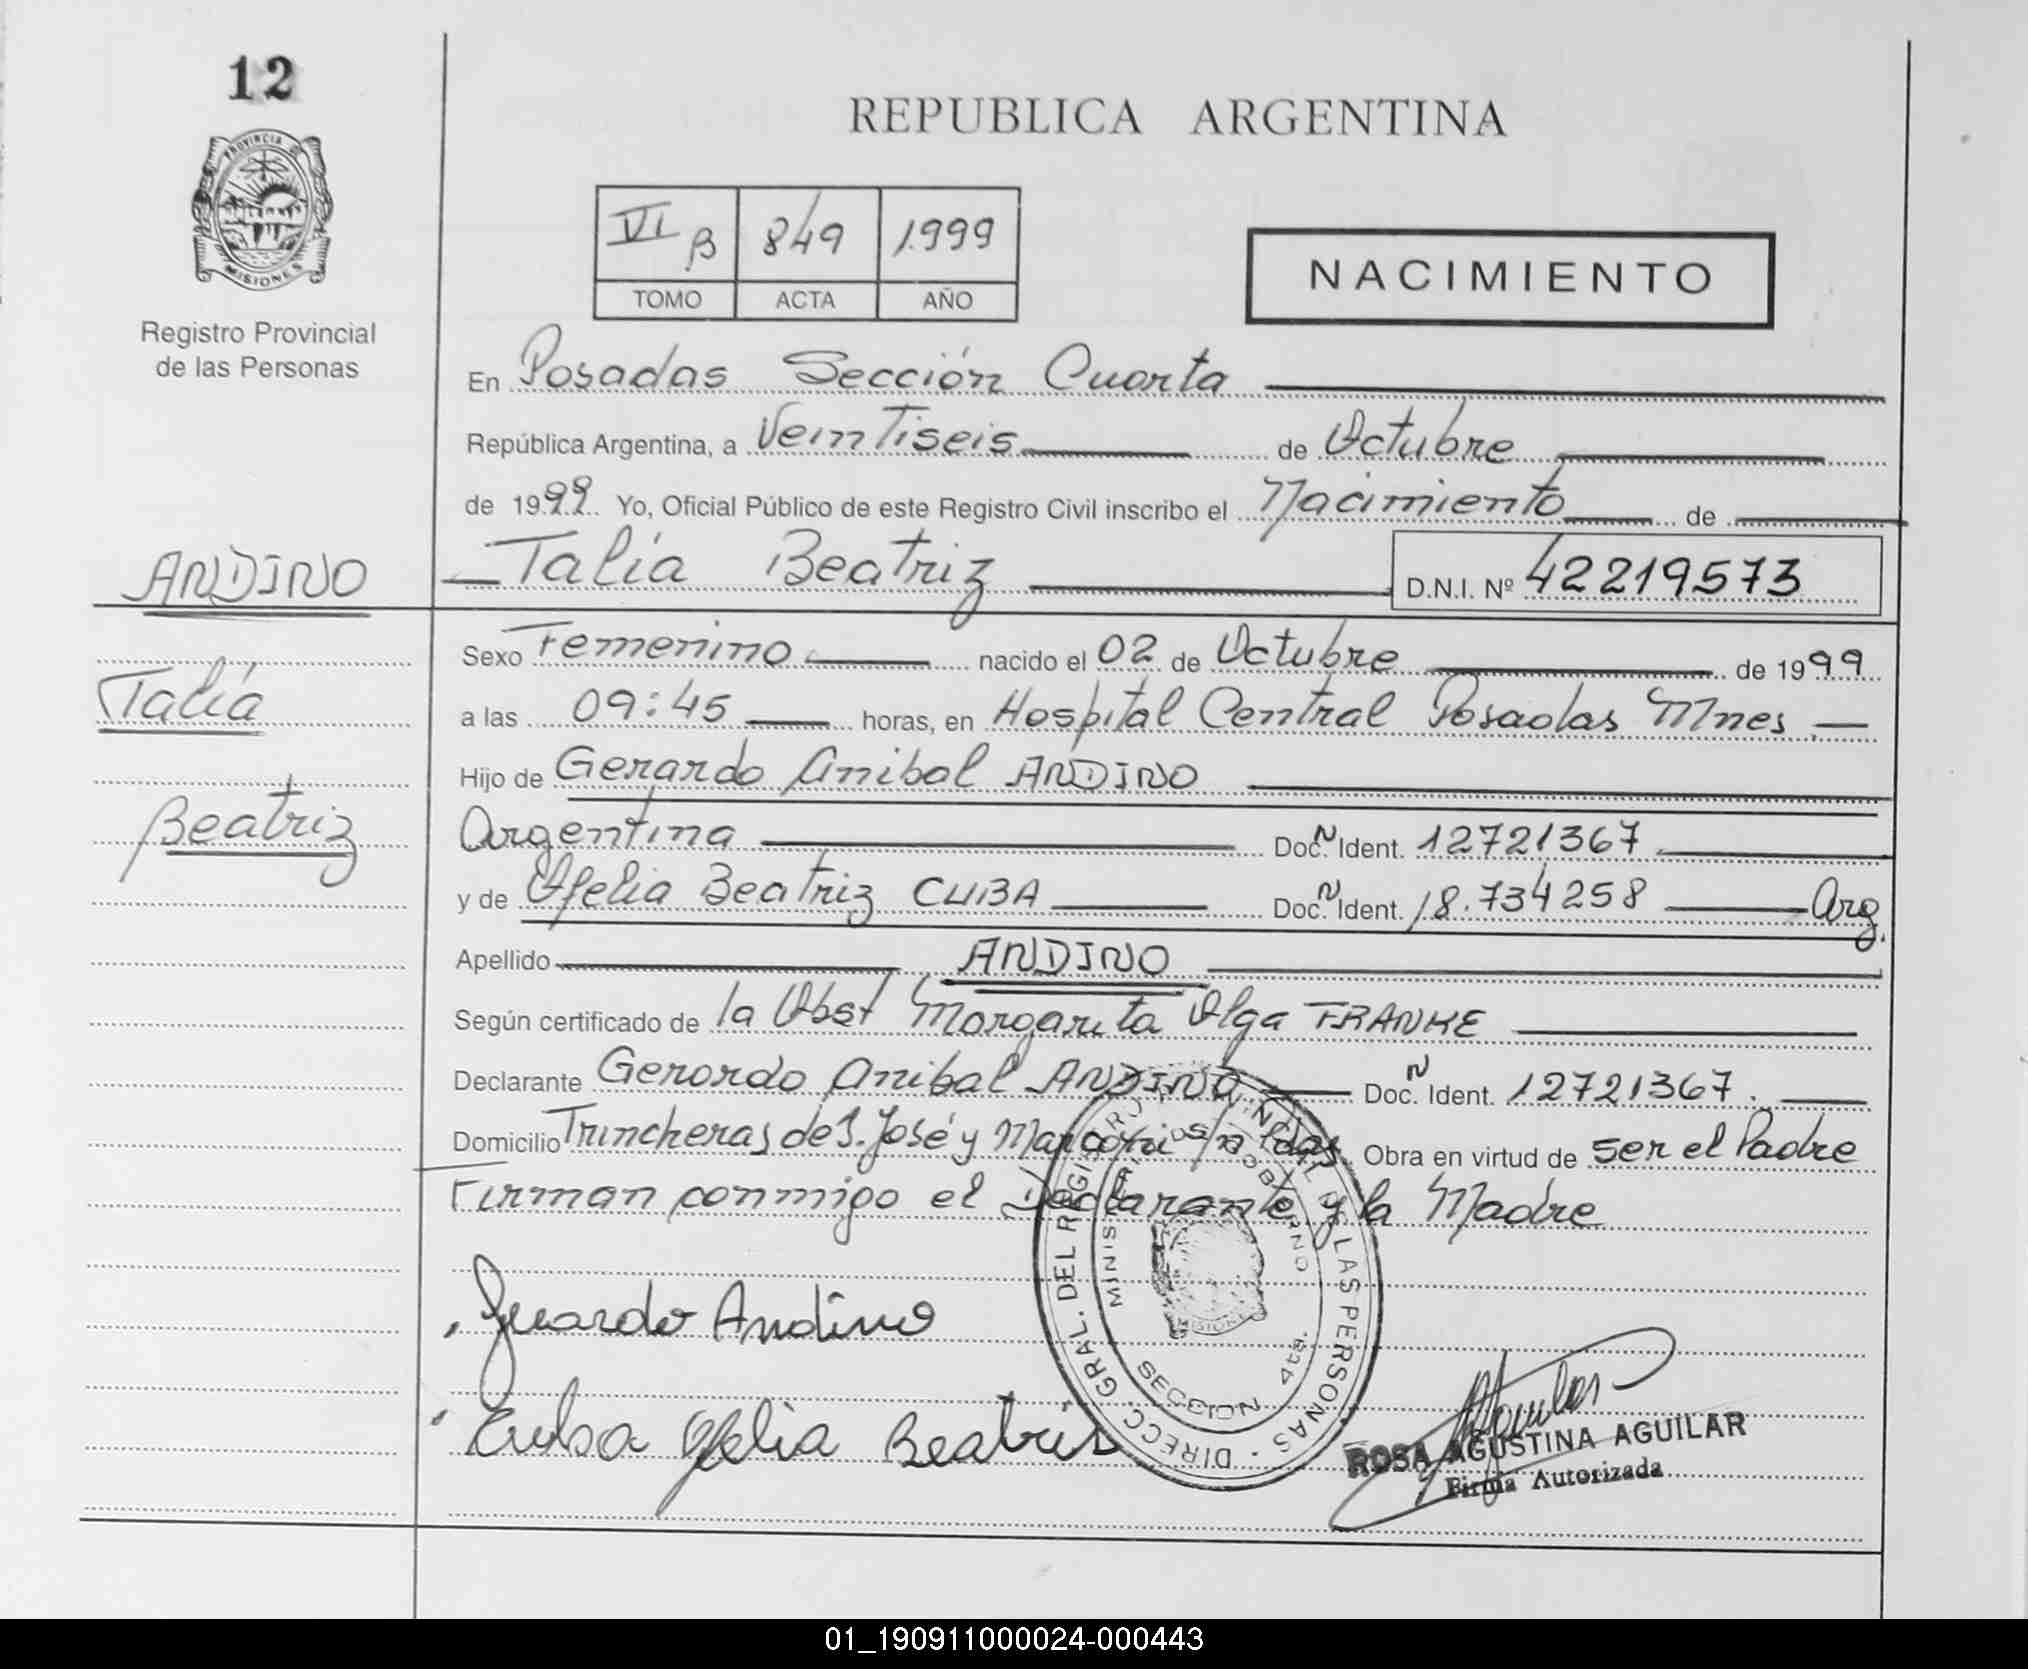 12
PROVINCIA DE
MISIONES
Registro Provincial
de las Personas
REPUBLICA ARGENTINA
VI B 849 1.999
TOMO ACTA AÑO
NACIMIENTO
En Posadas Sección Cuarta
República Argentina, a Veintiseis de Octubre
de 1999. Yo, Oficial Público de este Registro Civil inscribo el Nacimiento de
ANDINO
Talía Beatriz D.N.I. Nº 42219573
Sexo Femenino nacido el 02 de Octubre de 1999
Talía
a las 09:45 horas, en Hospital Central Posadas Mnes
Hijo de Gerardo Anibal ANDINO
Beatriz
Argentina Doc. N Ident. 12721367
y de Ofelia Beatriz CUBA Doc. N Ident. 18.734258 Arg.
Apellido ANDINO
Según certificado de la Obst Margarita Olga FRANKE
Declarante Gerardo Anibal ANDINO Doc. N Ident. 12721367.
Domicilio Trincheras de S. José y Marconi s/n Pdas Obra en virtud de ser el Padre
Firman conmigo el Declarante y la Madre
Gerardo Andino
Cuba Ofelia Beatris
DIRECC. GRAL. DEL REGISTRO PROVINCIAL DE LAS PERSONAS
MINISTERIO DE GOBIERNO
MISIONES
SECCION 4ta.
ROSA AGUSTINA AGUILAR
Firma Autorizada
01_190911000024-000443